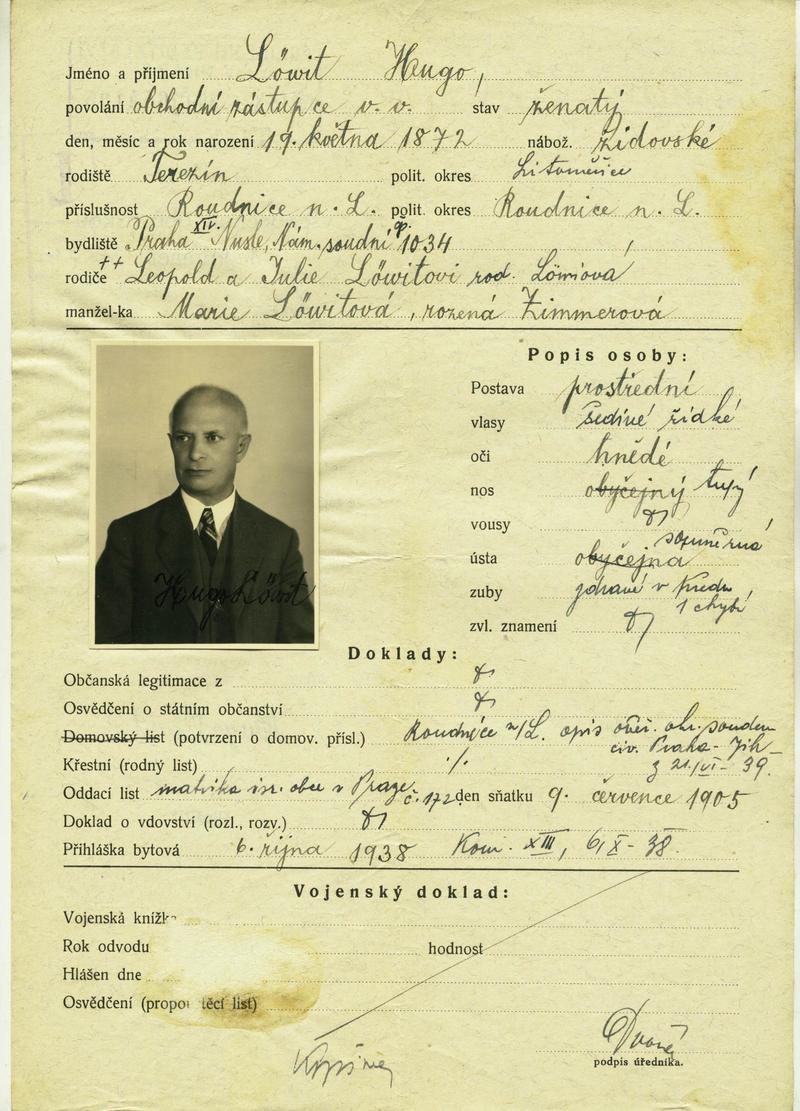 Jméno a příjmení Löwit Hugo,
povolání obchodní zástupce v. v. stav ženatý
den, měsíc a rok narození 19. května 1872 nábož. židovské
rodiště Terezín polit. okres Litoměřice
příslušnost Roudnice n. L. polit. okres Roudnice n. L.
bydliště Praha XIV. Nusle, Nám. soudní 1034
rodiče ++ Leopold a Julie Löwitovi roz.
manžel-ka Marie Löwitová, rozená Zimmerová
Popis osoby:
Postava prostřední
vlasy šedivé řídké
oči hnědé
nos obyčejný tupý
vousy
ústa obyčejná souměrná
zuby zdravé v předu 1 chybí
zvl. znamení
Hugo Löwit
Doklady:
Občanská legitimace z
Osvědčení o státním občanství
Domovský list (potvrzení o domov. přísl.) Roudnice n/L. opis okr. soudem
civ. Praha - Jih
z 21/VI - 39.
Křestní (rodný list) ./.
Oddací list matrika isr. obce v Praze č. 172 den sňatku 9. července 1905
Doklad o vdovství (rozl., rozv.)
Přihláška bytová 6. října 1938 Kom. XIII, 6/X - 38.
Vojenský doklad:
Vojenská knížk
Rok odvodu hodnost
Hlášen dne
Osvědčení (propou těcí list)
podpis úředníka.